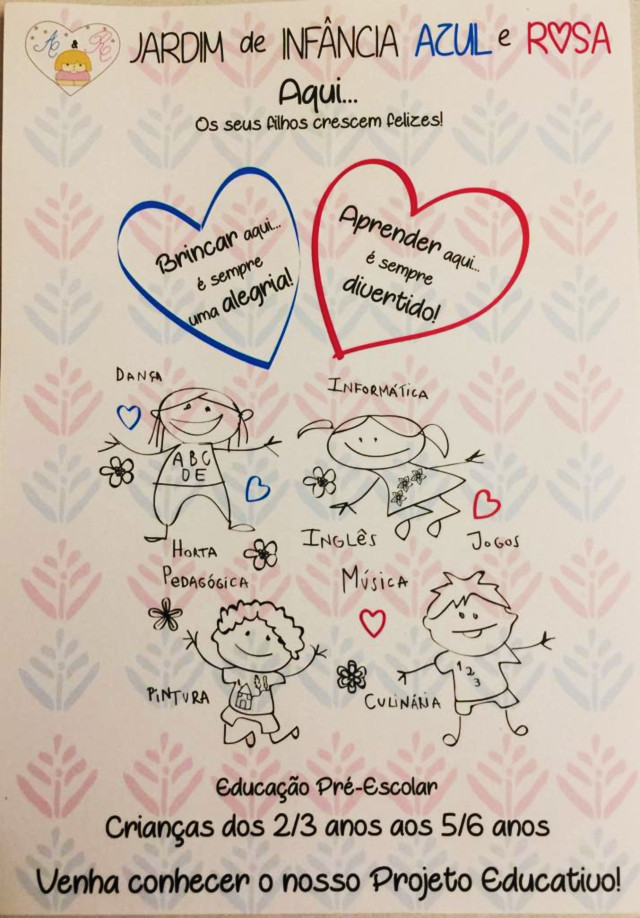 A & R
JARDIM de INFÂNCIA AZUL e ROSA
Aqui...
Os seus filhos crescem felizes!
Brincar aqui...
é sempre
uma alegria!
Aprender aqui...
é sempre
divertido!
DANÇA
INFORMÁTICA
ABC
DE
HORTA
PEDAGÓGICA
INGLÊS
JOGOS
MÚSICA
PINTURA
CULINÁRIA
1
2
3
Educação Pré-Escolar
Crianças dos 2/3 anos aos 5/6 anos
Venha conhecer o nosso Projeto Educativo!